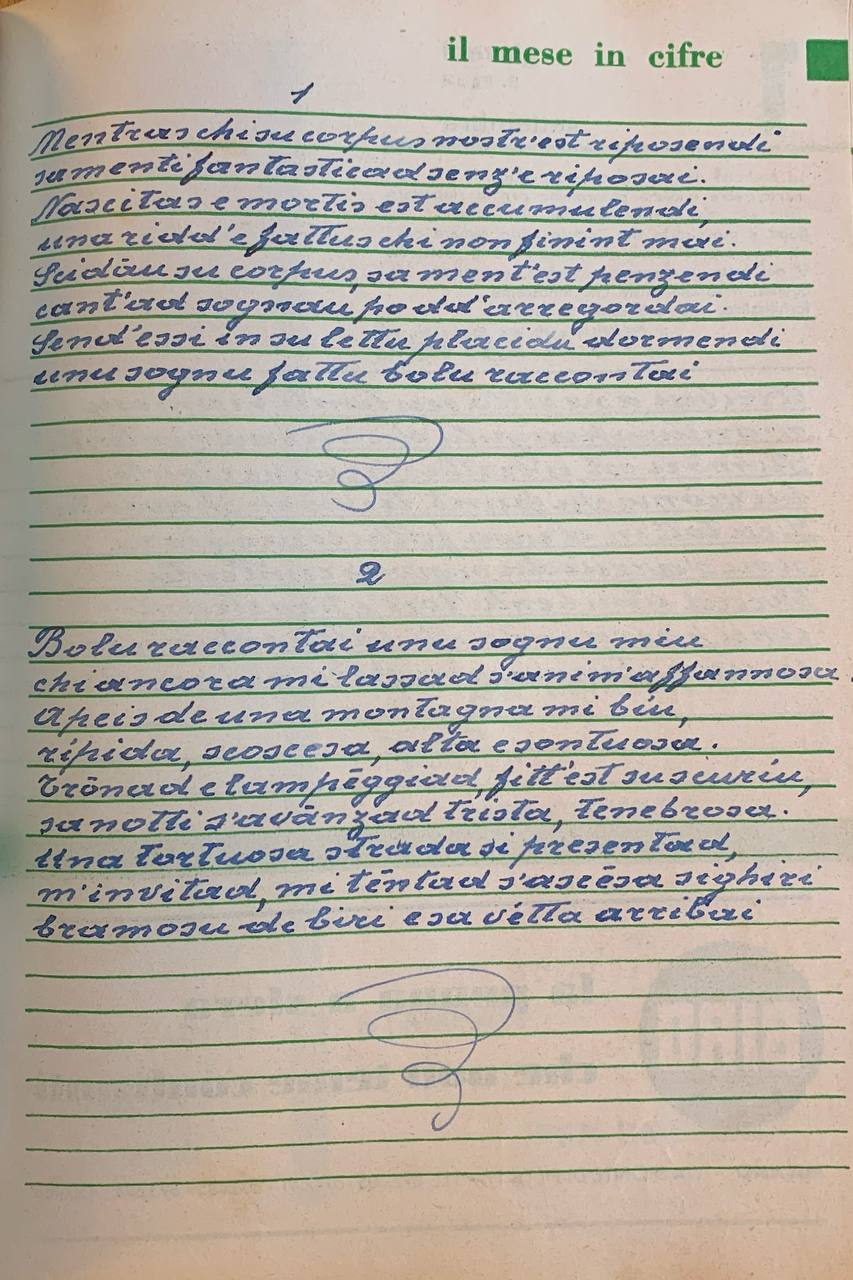 il mese in cifre
1
Mentras chi su corpus nostr'est riposendi
sa menti fantasticad senz'e riposai.
Nascitas e mortis est accumulendi,
una ridd'e fattus chi non finint mai.
Scidāu su corpus, sa ment'est penzendi
cant'ad sognau po dd'arregordai.
Send'essi in su lettu placidu dormendi
unu sognu fattu bolu raccontai
2
Bolu raccontai unu sognu miu
chi ancora mi lassad s'anim'affannosa.
A peis de una montagna mi biu,
rípida, scoscesa, alta e sontuosa.
Trōnad e lampēggiad, fitt'est su scuriu,
sa notti s'avānzad trista, tenebrosa.
Una tortuosa strada si presentad,
m'invitad, mi tēntad s'ascēsa sighiri
bramosu de biri e sa vétta arribai